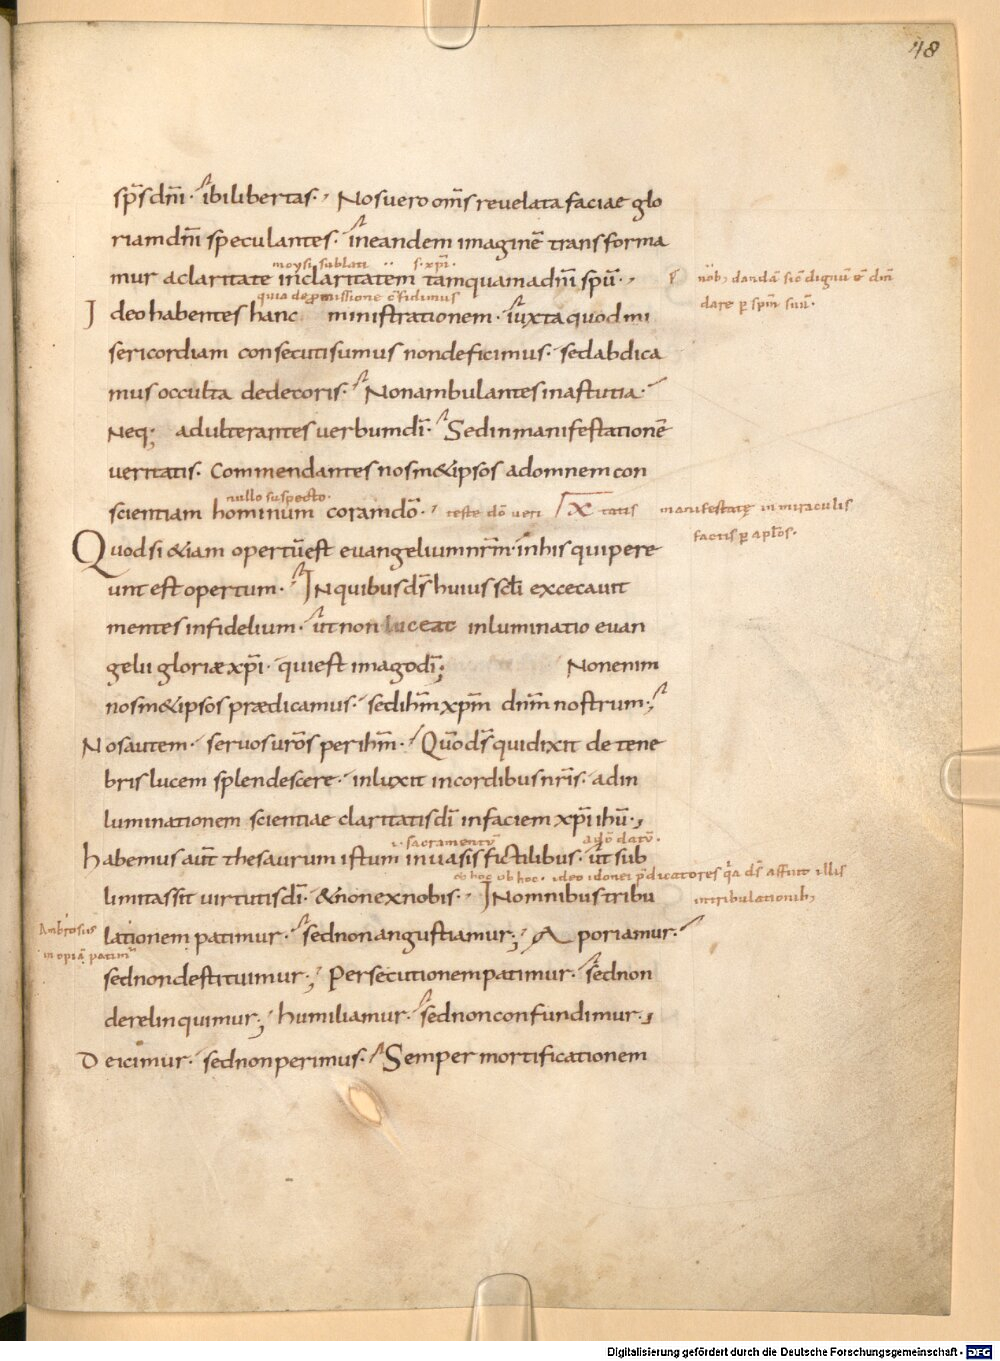 48
sp̅s dn̅i · ibi libertas · Nos uero om̅s reuelata faciae glo
riam dn̅i speculantes · in eandem imagine̅ transforma
moysi sublati ·· s· xp̅i ·
mur a claritate in claritatem tamquam a dn̅i spu̅ ·
nob; danda̅ sic̅ dignu̅ e̅ dn̅m
dare ꝑ spm̅ suu̅ ·
quia de ꝓmissione c̅fidimus
Ideo habentes hanc ministrationem · iuxta quod mi
sericordiam consecuti sumus non deficimus · sed abdica
mus occulta dedecoris · Non ambulantes in astutia ·
Neq; adulterantes uerbum di̅ · Sed in manifestatione̅
ueritatis · Commendantes nosm&ipsos ad omnem con
nullo suspecto ·
scientiam hominum coram do̅ · teste do̅ ueri tatis
manifestatę in miraculis
factis ꝑ aplo̅s ·
Quod si &iam opertu̅ est euangelium nr̅m · in his qui pere
unt est opertum · In quibus ds̅ huius scl̅i excecauit
mentes infidelium · ut non luceat inluminatio euan
gelii gloriae xp̅i · qui est imago di̅; Non enim
nosm&ipsos praedicamus · sed ihm̅ xpm̅ dnm̅ nostrum;
Nos autem · seruos uro̅s per ihm̅ · Qm̅ ds̅ qui dixit de tene
bris lucem splendescere · inluxit in cordibus nr̅is · ad in
luminationem scientiae claritatis di̅ in faciem xp̅i ihu̅ ·
i· sacramentu̅
habemus aut̅ thesaurum istum in uasis fictilibus · ut sub
ob hoc ob hoc · ideo idonei p̅dicatores q̅a ds̅ assint illis
in tribulationib;
limitas sit uirtutis di̅ · & non ex nobis · In omnibus tribu
Ambrosius
lationem patimur · sed non angustiamur; Aporiamur ·
inopia̅ patim̅
sed non destituimur; Persecutionem patimur · sed non
derelinquimur; humiliamur · sed non confundimur ·
Deicimur · sed non perimus · Semper mortificationem
Digitalisierung gefördert durch die Deutsche Forschungsgemeinschaft - DFG